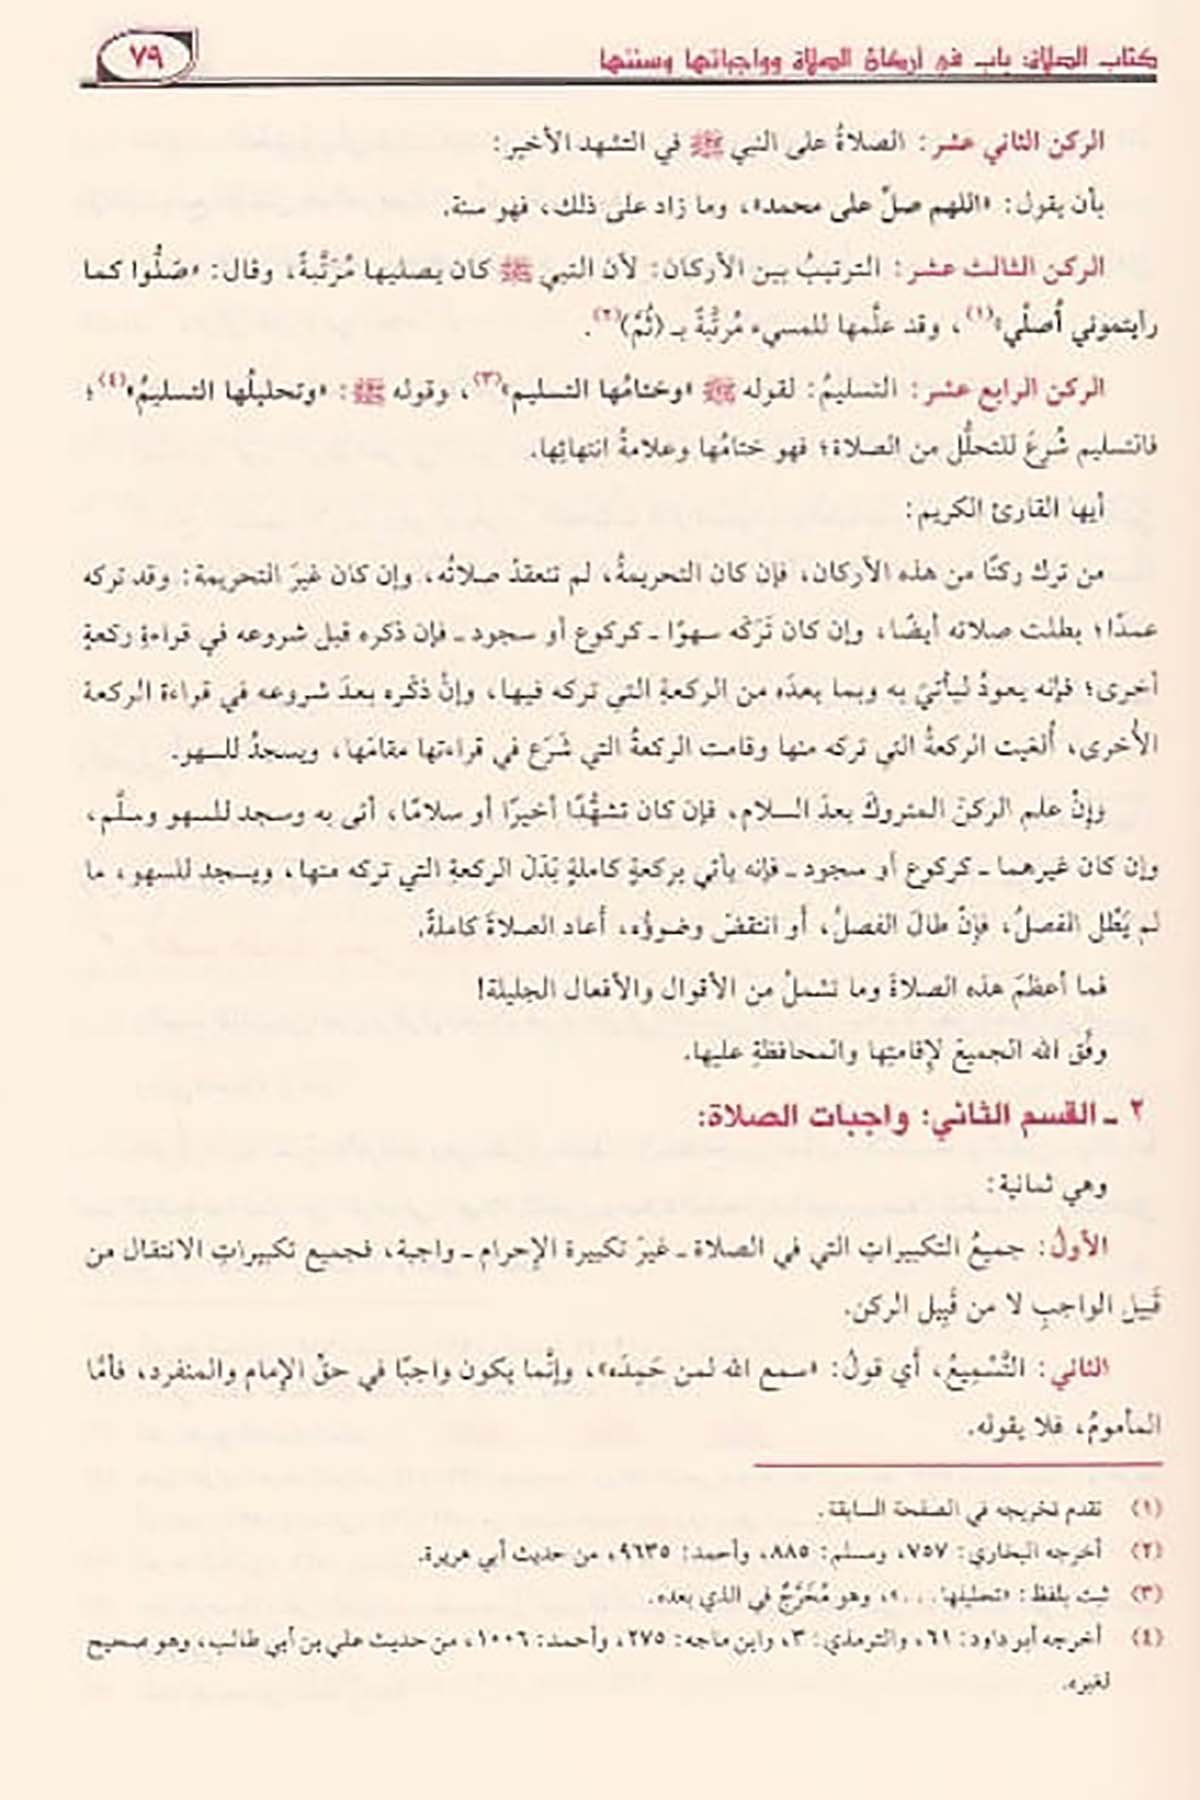 كتاب الصلاة: باب في أركان الصلاة وواجباتها وسننها
٧٩
الركن الثاني عشر: الصلاةُ على النبي ﷺ في التشهد الأخير:
بأن يقول: «اللهم صلِّ على محمد»، وما زاد على ذلك، فهو سنة.
الركن الثالث عشر: الترتيبُ بين الأركان: لأن النبي ﷺ كان يصليها مُرَتَّبةً، وقال: «صَلُّوا كما
رأيتموني أُصلّي»(١)، وقد علَّمها للمسيء مُرتَّبةً بـ (ثُمَّ)(٢).
الركن الرابع عشر: التسليمُ: لقوله ﷺ «وختامُها التسليم»(٣)، وقوله ﷺ: «وتحليلُها التسليمُ»(٤)؛
فالتسليم شُرعَ للتحلُّل من الصلاة؛ فهو ختامُها وعلامةُ انتهائِها.
أيها القارئ الكريم:
من ترك ركنًا من هذه الأركان، فإن كان التحريمةُ، لم تنعقدْ صلاتُه، وإن كان غيرَ التحريمة: وقد تركه
عمدًا؛ بطلت صلاته أيضًا، وإن كان تَرَكَه سهوًا ـ كركوع أو سجود ـ فإن ذكره قبل شروعه في قراءةِ ركعةٍ
أخرى؛ فإنه يعودُ ليأتيَ به وبما بعدَه من الركعةِ التي تركه فيها، وإنْ ذكَره بعدَ شروعه في قراءة الركعة
الأُخرى، أُلغيت الركعةُ التي تركه منها وقامت الركعةُ التي شَرَع في قراءتها مقامَها، ويسجدُ للسهو.
وإنْ علم الركنَ المتروكَ بعدَ السلام، فإن كان تشهُّدًا أخيرًا أو سلامًا، أتى به وسجد للسهو وسلَّم،
وإن كان غيرهما ـ كركوع أو سجود ـ فإنه يأتي بركعةٍ كاملةٍ بَدَلَ الركعةِ التي تركه منها، ويسجد للسهو، ما
لم يَطُل الفصلُ، فإنْ طالَ الفصلُ، أو انتقضَ وضوؤه، أعاد الصلاةَ كاملةً.
فما أعظمَ هذه الصلاةَ وما تشملُ من الأقوال والأفعال الجليلة!
وفَّق الله الجميعَ لإقامتِها والمحافظةِ عليها.
٢ ـ القسم الثاني: واجبات الصلاة:
وهي ثمانية:
الأولُ: جميعُ التكبيراتِ التي في الصلاة ـ غيرَ تكبيرة الإحرام ـ واجبة، فجميع تكبيراتِ الانتقال من
قَبيل الواجبِ لا من قَبِيل الركن.
الثاني: التَّسْمِيعُ، أي قولُ: «سمع الله لمن حَمِدَه»، وإنَّما يكون واجبًا في حقِّ الإمام والمنفرد، فأمَّا
المأمومُ، فلا يقوله.
(١) تقدم تخريجه في الصفحة السابقة.
(٢) أخرجه البخاري: ٧٥٧، ومسلم: ٨٨٥، وأحمد: ٩٦٣٥، من حديث أبي هريرة.
(٣) ثبت بلفظ: «تحليلها...»، وهو مُخَرَّجٌ في الذي بعده.
(٤) أخرجه أبو داود: ٦١، والترمذي: ٣، وابن ماجه: ٢٧٥، وأحمد: ١٠٠٦، من حديث علي بن أبي طالب، وهو صحيح
لغيره.